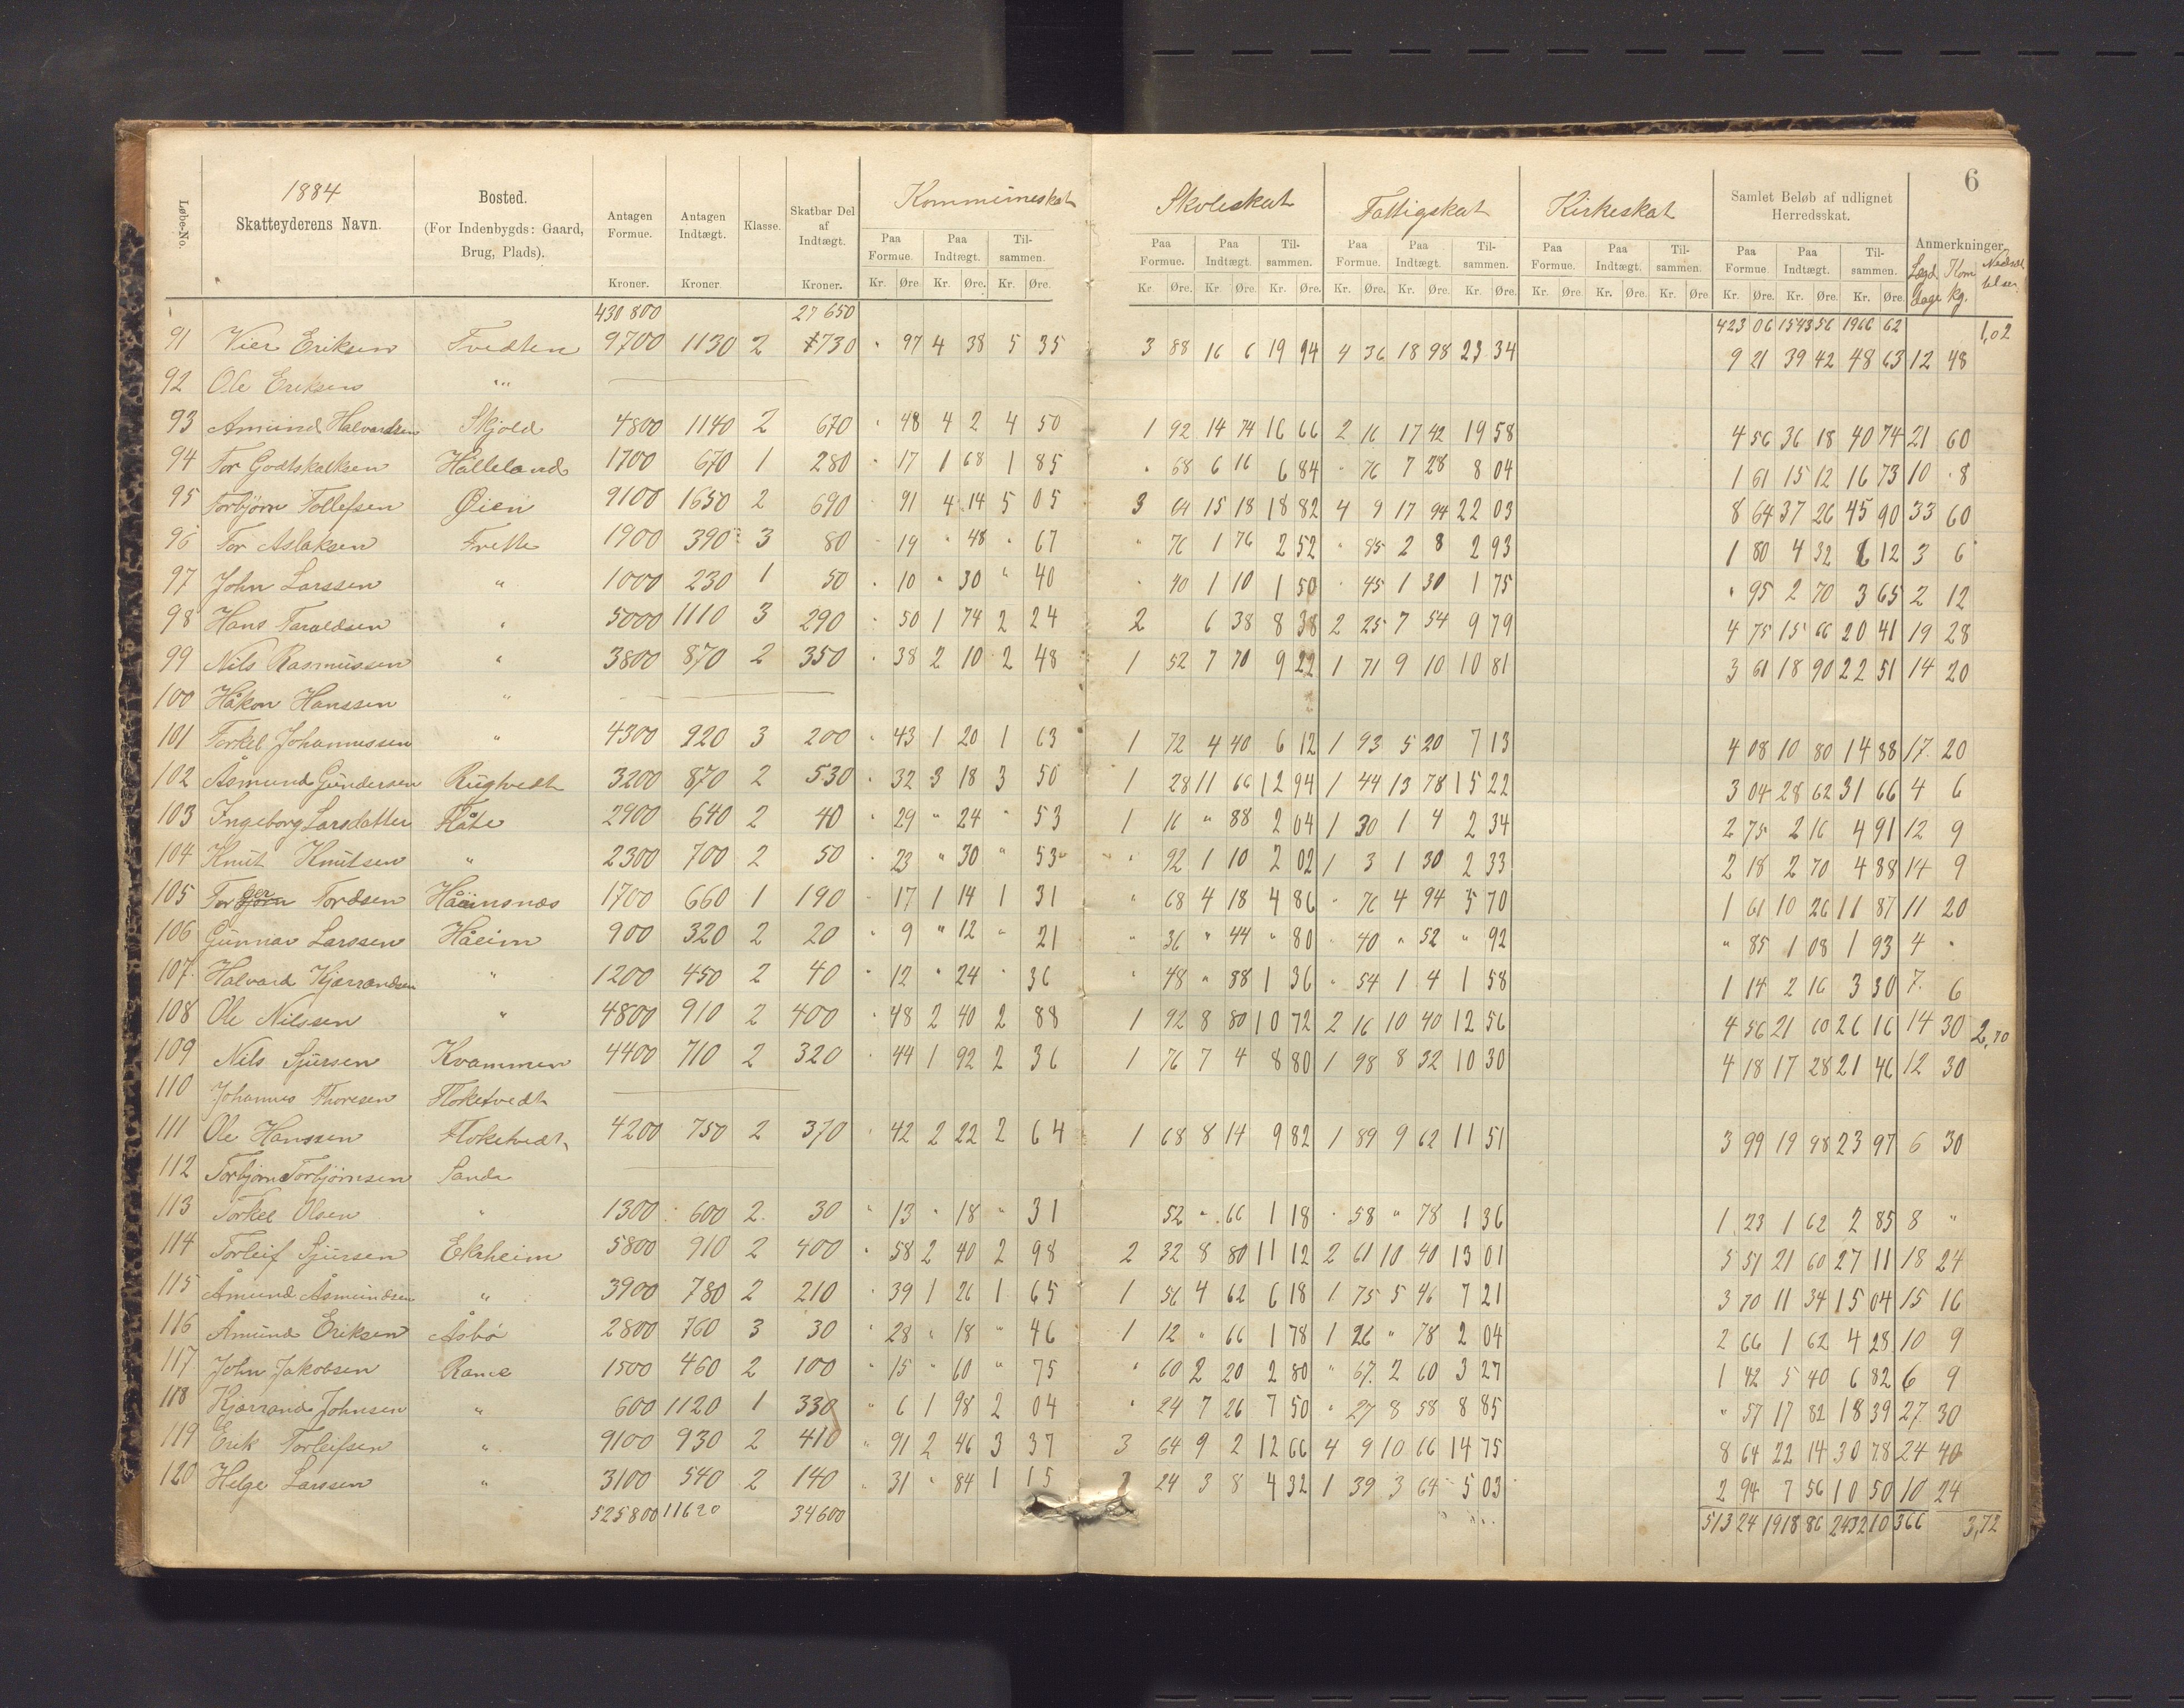 6
1884 Kommuneskat Skoleskat Fattigskat Kirkeskat
Løbe-No. Skatteyderens Navn. Bosted. (For Indenbygds: Gaard, Brug, Plads). Antagen Formue. Antagen Indtægt. Klasse. Skatbar Del af Indtægt. Paa Formue. Paa Indtægt. Tilsammen. Paa Formue. Paa Indtægt. Tilsammen. Paa Formue. Paa Indtægt. Tilsammen. Paa Formue. Paa Indtægt. Tilsammen. Samlet Beløb af udlignet Herredsskat. Paa Formue Paa Indtægt. Tilsammen. Anmerkninger. Lægd dage Korn kg.
Kroner. Kroner Kroner. Kr. Øre. Kr. Øre. Kr. Øre. Kr. Øre. Kr. Øre. Kr. Øre. Kr. Øre. Kr. Øre. Kr. Øre. Kr. Øre. Kr. Øre. Kr. Øre Kr. Øre. Kr. Øre. Kr. Øre.
430 800 27 650 423 06 1543 56 1966 62 1,02
91 Vier Eriksen Tvedten 9700 1130 2 730 " 97 4 38 5 35 3 88 16 6 19 94 4 36 18 98 23 34 9 21 39 42 48 63 12 48
92 Ole Eriksen " "
93 Amund Halvardsen Skjold 4800 1140 2 670 " 48 4 2 4 50 1 92 14 74 16 66 2 16 17 42 19 58 4 56 36 18 40 74 21 60
94 Tor Godtskalksen Hålleland 1700 670 1 280 " 17 1 68 1 85 " 68 6 16 6 84 " 76 7 28 8 04 1 61 15 12 16 73 10 8
95 Torbjørn Tollefsen Øien 9100 1650 2 690 " 91 4 14 5 05 3 64 15 18 18 82 4 9 17 94 22 03 8 64 37 26 45 90 33 60
96 Tor Aslaksen Frette 1900 390 3 80 " 19 " 48 " 67 " 76 1 76 2 52 " 85 2 8 2 93 1 80 4 32 6 12 3 6
97 John Larssen " 1000 230 1 50 " 10 " 30 " 40 " 40 1 10 1 50 " 45 1 30 1 75 " 95 2 70 3 65 2 12
98 Hans Taraldsen " 5000 1110 3 290 " 50 1 74 2 24 2 6 38 8 38 2 25 7 54 9 79 4 75 15 66 20 41 19 28
99 Nils Rasmussen " 3800 870 2 350 " 38 2 10 2 48 1 52 7 70 9 22 1 71 9 10 10 81 3 61 18 90 22 51 14 20
100 Håkon Hanssen "
101 Torkel Johannessen " 4300 920 3 200 " 43 1 20 1 63 1 72 4 40 6 12 1 93 5 20 7 13 4 08 10 80 14 88 17 20
102 Åsmund Gundersen Rugtvedt 3200 870 2 530 " 32 3 18 3 50 1 28 11 66 12 94 1 44 13 78 15 22 3 04 28 62 31 66 4 6
103 Ingeborg Larsdatter Flåte 2900 640 2 40 " 29 " 24 " 53 1 16 " 88 2 04 1 30 1 4 2 34 2 75 2 16 4 91 12 9
104 Knut Knutsen " 2300 700 2 50 " 23 " 30 " 53 " 92 1 10 2 02 1 3 1 30 2 33 2 18 2 70 4 88 14 9
105 Torger Tordsen Håeimsnæs 1700 660 1 190 " 17 1 14 1 31 " 68 4 18 4 86 " 76 4 94 5 70 1 61 10 26 11 87 11 20
106 Gunnar Larssen Håeim 900 320 2 20 " 9 " 12 " 21 " 36 " 44 " 80 " 40 " 52 " 92 " 85 1 08 1 93 4 "
107 Halvard Kjærrandsen " 1200 450 2 40 " 12 " 24 " 36 " 48 " 88 1 36 " 54 1 4 1 58 1 14 2 16 3 30 7 6
108 Ole Nilssen " 4800 910 2 400 " 48 2 40 2 88 1 92 8 80 10 72 2 16 10 40 12 56 4 56 21 60 26 16 14 30 2,70
109 Nils Sjursen Kvammen 4400 710 2 320 " 44 1 92 2 36 1 76 7 4 8 80 1 98 8 32 10 30 4 18 17 28 21 46 12 30
110 Johannes Thoresen Floketvedt
111 Ole Hanssen Floketvedt 4200 750 2 370 " 42 2 22 2 64 1 68 8 14 9 82 1 89 9 62 11 51 3 99 19 98 23 97 6 30
112 Torbjørn Torbjørnsen Sande
113 Torkel Olsen " 1300 600 2 30 " 13 " 18 " 31 52 " 66 1 18 " 58 " 78 1 36 1 23 1 62 2 85 8 "
114 Torleif Sjursen Ekaheim 5800 910 2 400 " 58 2 40 2 98 2 32 8 80 11 12 2 61 10 40 13 01 5 51 21 60 27 11 18 24
115 Åmund Åsmundsen " 3900 780 2 210 " 39 1 26 1 65 1 56 4 62 6 18 1 75 5 46 7 21 3 70 11 34 15 04 15 16
116 Åmund Eriksen Åsbø 2800 760 3 30 " 28 " 18 " 46 1 12 " 66 1 78 1 26 " 78 2 04 2 66 1 62 4 28 10 9
117 John Jakobsen Rame 1500 460 2 100 " 15 " 60 " 75 " 60 2 20 2 80 " 67 2 60 3 27 1 42 5 40 6 82 6 9
118 Kjærrand Johnsen " 600 1120 1 330 " 6 1 98 2 04 " 24 7 26 7 50 " 27 8 58 8 85 " 57 17 82 18 39 27 30
119 Erik Torleifsen " 9100 930 2 410 " 91 2 46 3 37 3 64 9 2 12 66 4 9 10 66 14 75 8 64 22 14 30 78 24 40
120 Helge Larssen " 3100 540 2 140 " 31 " 84 1 15 1 24 3 8 4 32 1 39 3 64 5 03 2 94 7 56 10 50 10 24
525800 34600 513 24 1918 86 2432 10 366 3,72